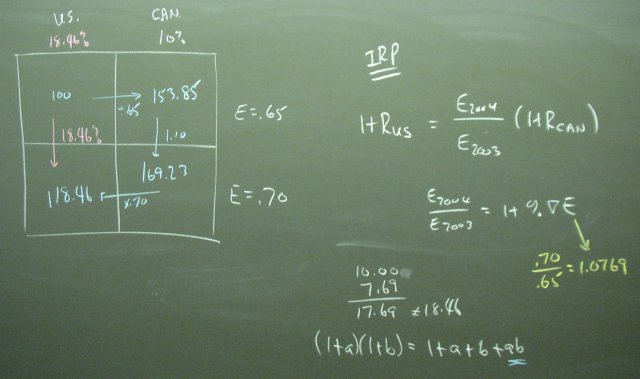 U.S. CAN.
18.46% 10%
100 → 153.85 E=.65
÷.65
18.46% 1.10
169.23
118.46 ← x.70 E=.70
IRP
1+R_US = E_2004 / E_2003 (1+R_CAN)
E_2004 / E_2003 = 1+%∇E
.70 / .65 = 1.0769
10.00
7.69
17.69 ≠ 18.46
(1+a)(1+b) = 1+a+b+ab